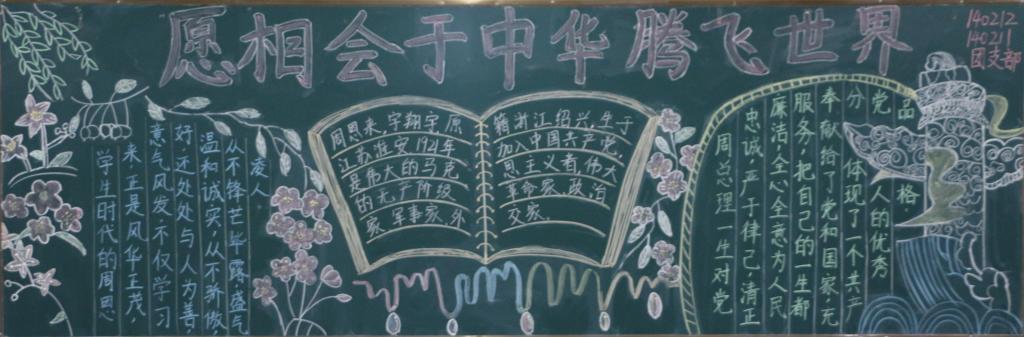 愿相会于中华腾飞世界
140212
140211
团支部
学生时代的周恩
来正是风华正茂,
意气风发不仅学习
好,还处处与人为善,
温和诚实,从不骄傲,
从不锋芒毕露,盛气
凌人
周恩来,字翔宇,原籍浙江绍兴,生于
江苏淮安,1921年加入中国共产党,
是伟大的马克思主义者,伟大
的无产阶级革命家,政治
家,军事家,外交家.
周总理一生对党
忠诚,严于律己,清正
廉洁,全心全意为人民
服务,把自己的一生都
奉献给了党和国家,充
分体现了一个共产
党人的优秀
品格